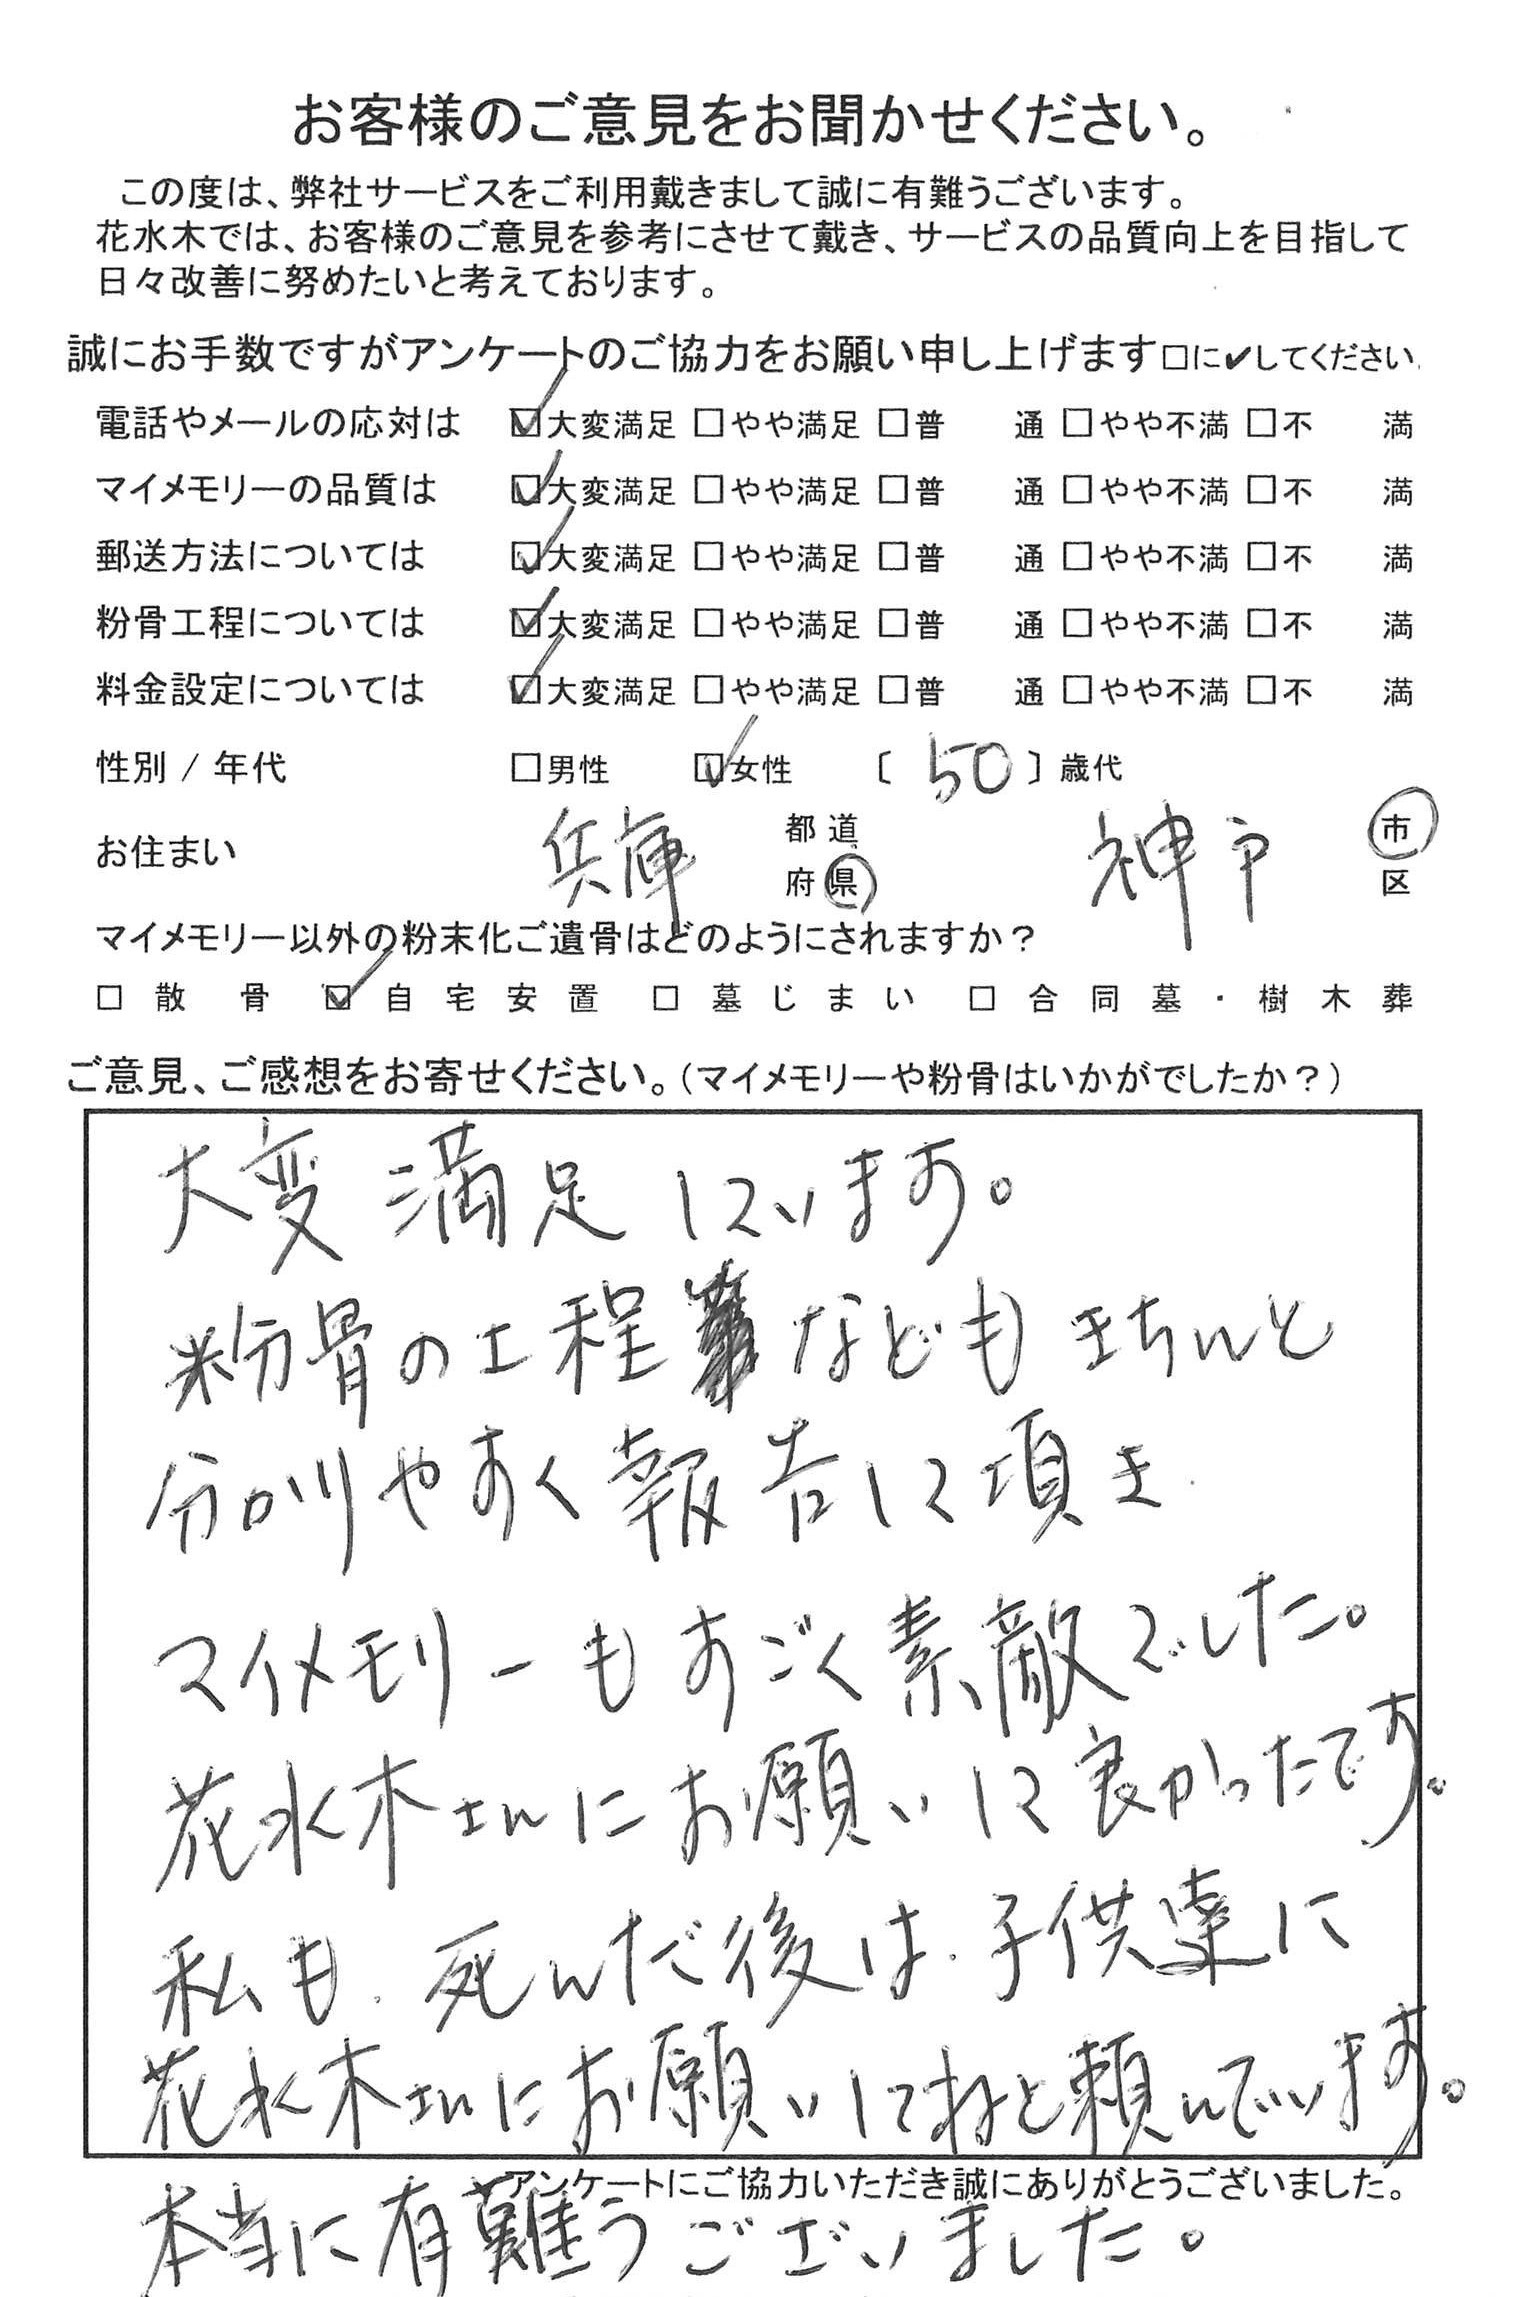 お客様のご意見をお聞かせください。
この度は、弊社サービスをご利用戴きまして誠に有難うございます。
花水木では、お客様のご意見を参考にさせて戴き、サービスの品質向上を目指して
日々改善に努めたいと考えております。
誠にお手数ですがアンケートのご協力をお願い申し上げます□に✔してください.
電話やメールの応対は ☑大変満足 □やや満足 □普 通 □やや不満 □不 満
マイメモリーの品質は ☑大変満足 □やや満足 □普 通 □やや不満 □不 満
郵送方法については ☑大変満足 □やや満足 □普 通 □やや不満 □不 満
粉骨工程については ☑大変満足 □やや満足 □普 通 □やや不満 □不 満
料金設定については ☑大変満足 □やや満足 □普 通 □やや不満 □不 満
性別 / 年代 □男性 ☑女性 〔 50 〕歳代
お住まい 兵庫 都道府県 神戸 市区
マイメモリー以外の粉末化ご遺骨はどのようにされますか？
□ 散骨 ☑ 自宅安置 □ 墓じまい □ 合同墓・樹木葬
ご意見、ご感想をお寄せください。（マイメモリーや粉骨はいかがでしたか？）
大変満足しています。
粉骨の工程などもきちんと
分かりやすく報告して頂き
マイメモリーもすごく素敵でした。
花水木さんにお願いして良かったです。
私も、死んだ後は、子供達に
花水木さんにお願いしてねと頼んでいます。
アンケートにご協力いただき誠にありがとうございました。
本当に有難うございました。